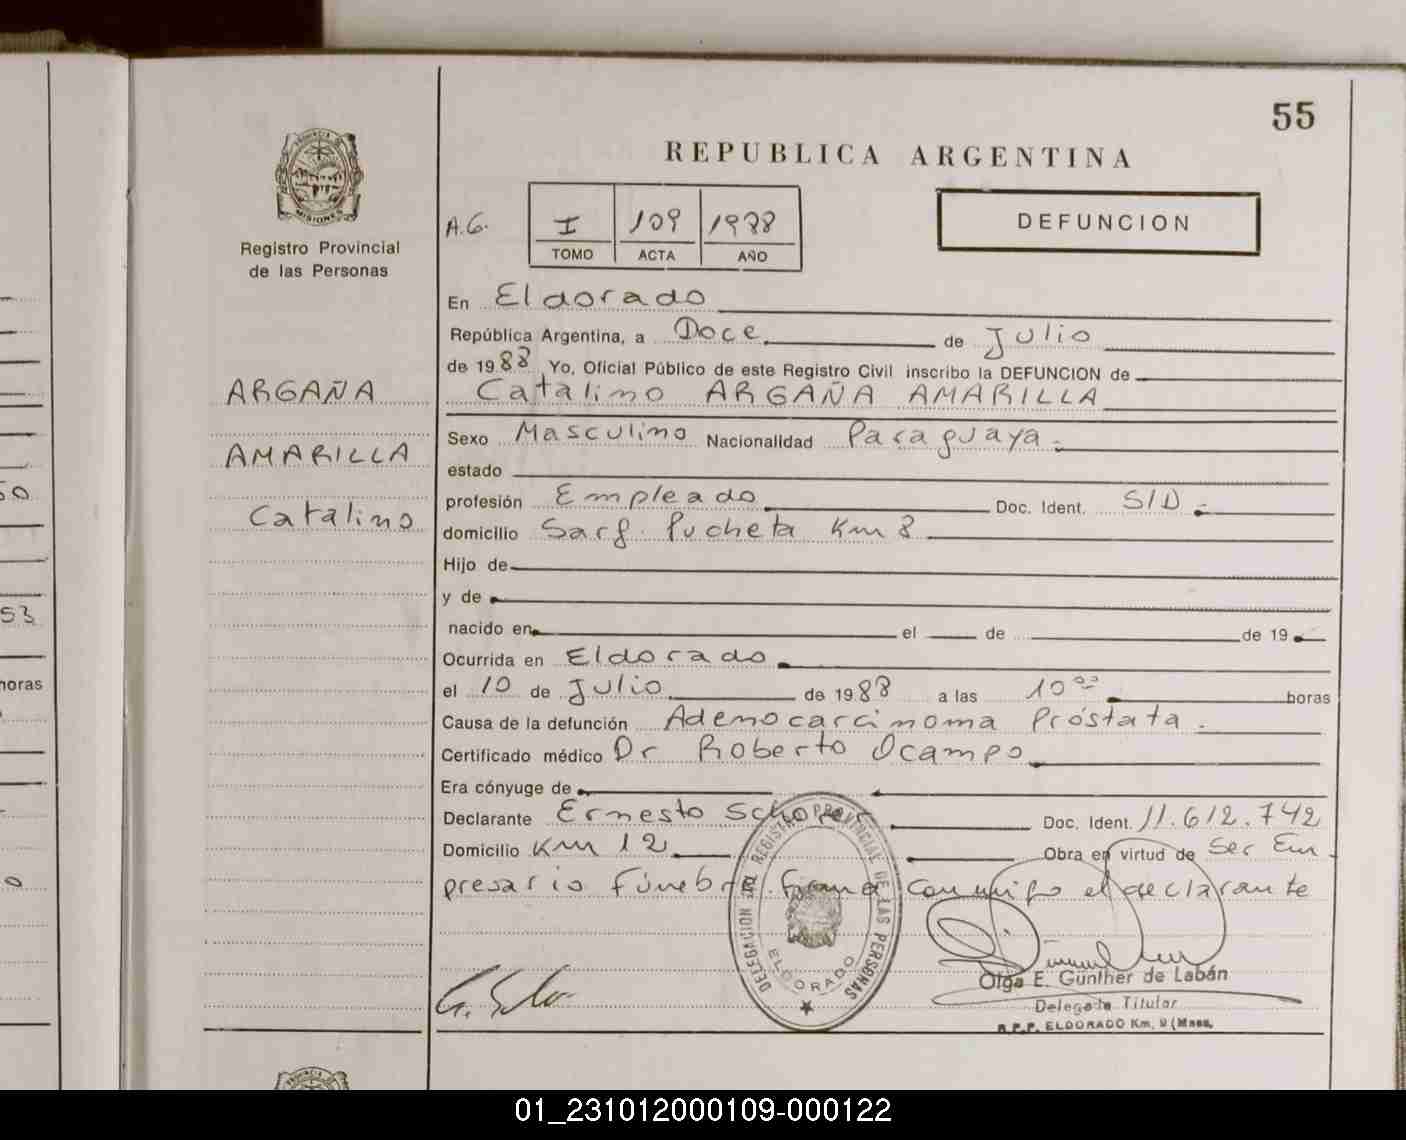 55
REPUBLICA ARGENTINA
PROVINCIA DE
MISIONES
Registro Provincial
de las Personas
A.G.
I 109 1988
TOMO ACTA AÑO
DEFUNCION
En Eldorado
República Argentina, a Doce de Julio
de 1988 Yo, Oficial Público de este Registro Civil inscribo la DEFUNCION de
ARGAÑA
Catalino ARGAÑA AMARILLA
Sexo Masculino Nacionalidad Paraguaya.
AMARILLA
estado
50
profesión Empleado Doc. Ident. S/D.
Catalino
domicilio Sarg. Pucheta Km 8
Hijo de
y de
53
nacido en el de de 19
Ocurrida en Eldorado
horas
el 10 de Julio de 1988 a las 10 horas
Causa de la defunción Adenocarcinoma Próstata.
Certificado médico Dr Roberto Ocampo
Era cónyuge de
Declarante Ernesto Doc. Ident. 11.612.742
Domicilio Km 12 Obra en virtud de Ser Em
presario Fúnebre. Firma conmigo el declarante
DELEGACION DEL REGISTRO PROVINCIAL DE LAS PERSONAS
ELDORADO
Olga E. Günther de Labán
Delegada Titular
R.P.P. ELDORADO Km. 9 (Mnes.
01_231012000109-000122